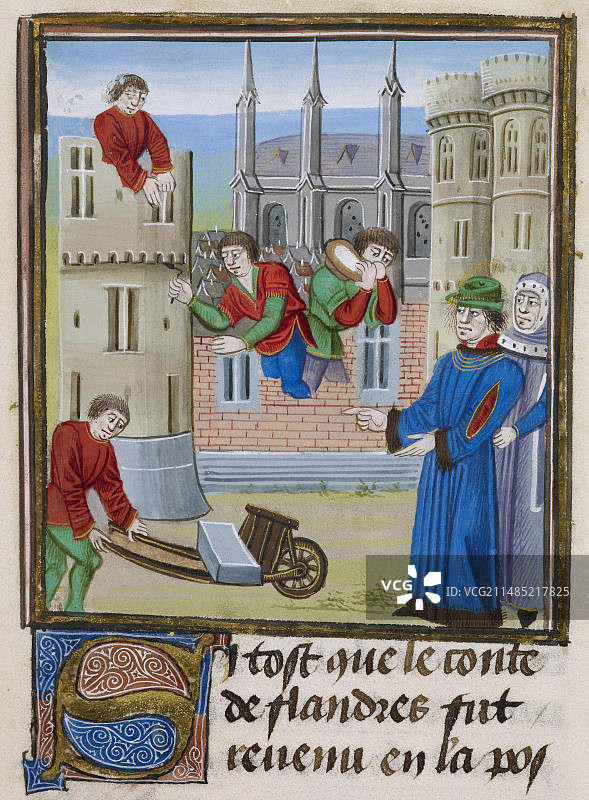 VCG
VCG ID:VCG211485217825
Si tost que le conte
de flandres fut
revenu en la pos